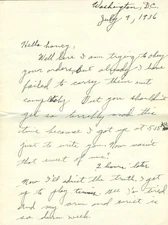 Washington, D.C.
July 9, 1936
Hello honey,
Well here I am trying to obey
your orders, but already I have
failed to carry them out
completely. But you shouldn't
get so horribly mad this
time because I got up at 5:15
just to write you. Now wasn't
that sweet of me!
2 hours later
Now I'll admit the truth, I got
up to play tennis. See I'm tired
and my arm and wrist is
so damn weak.